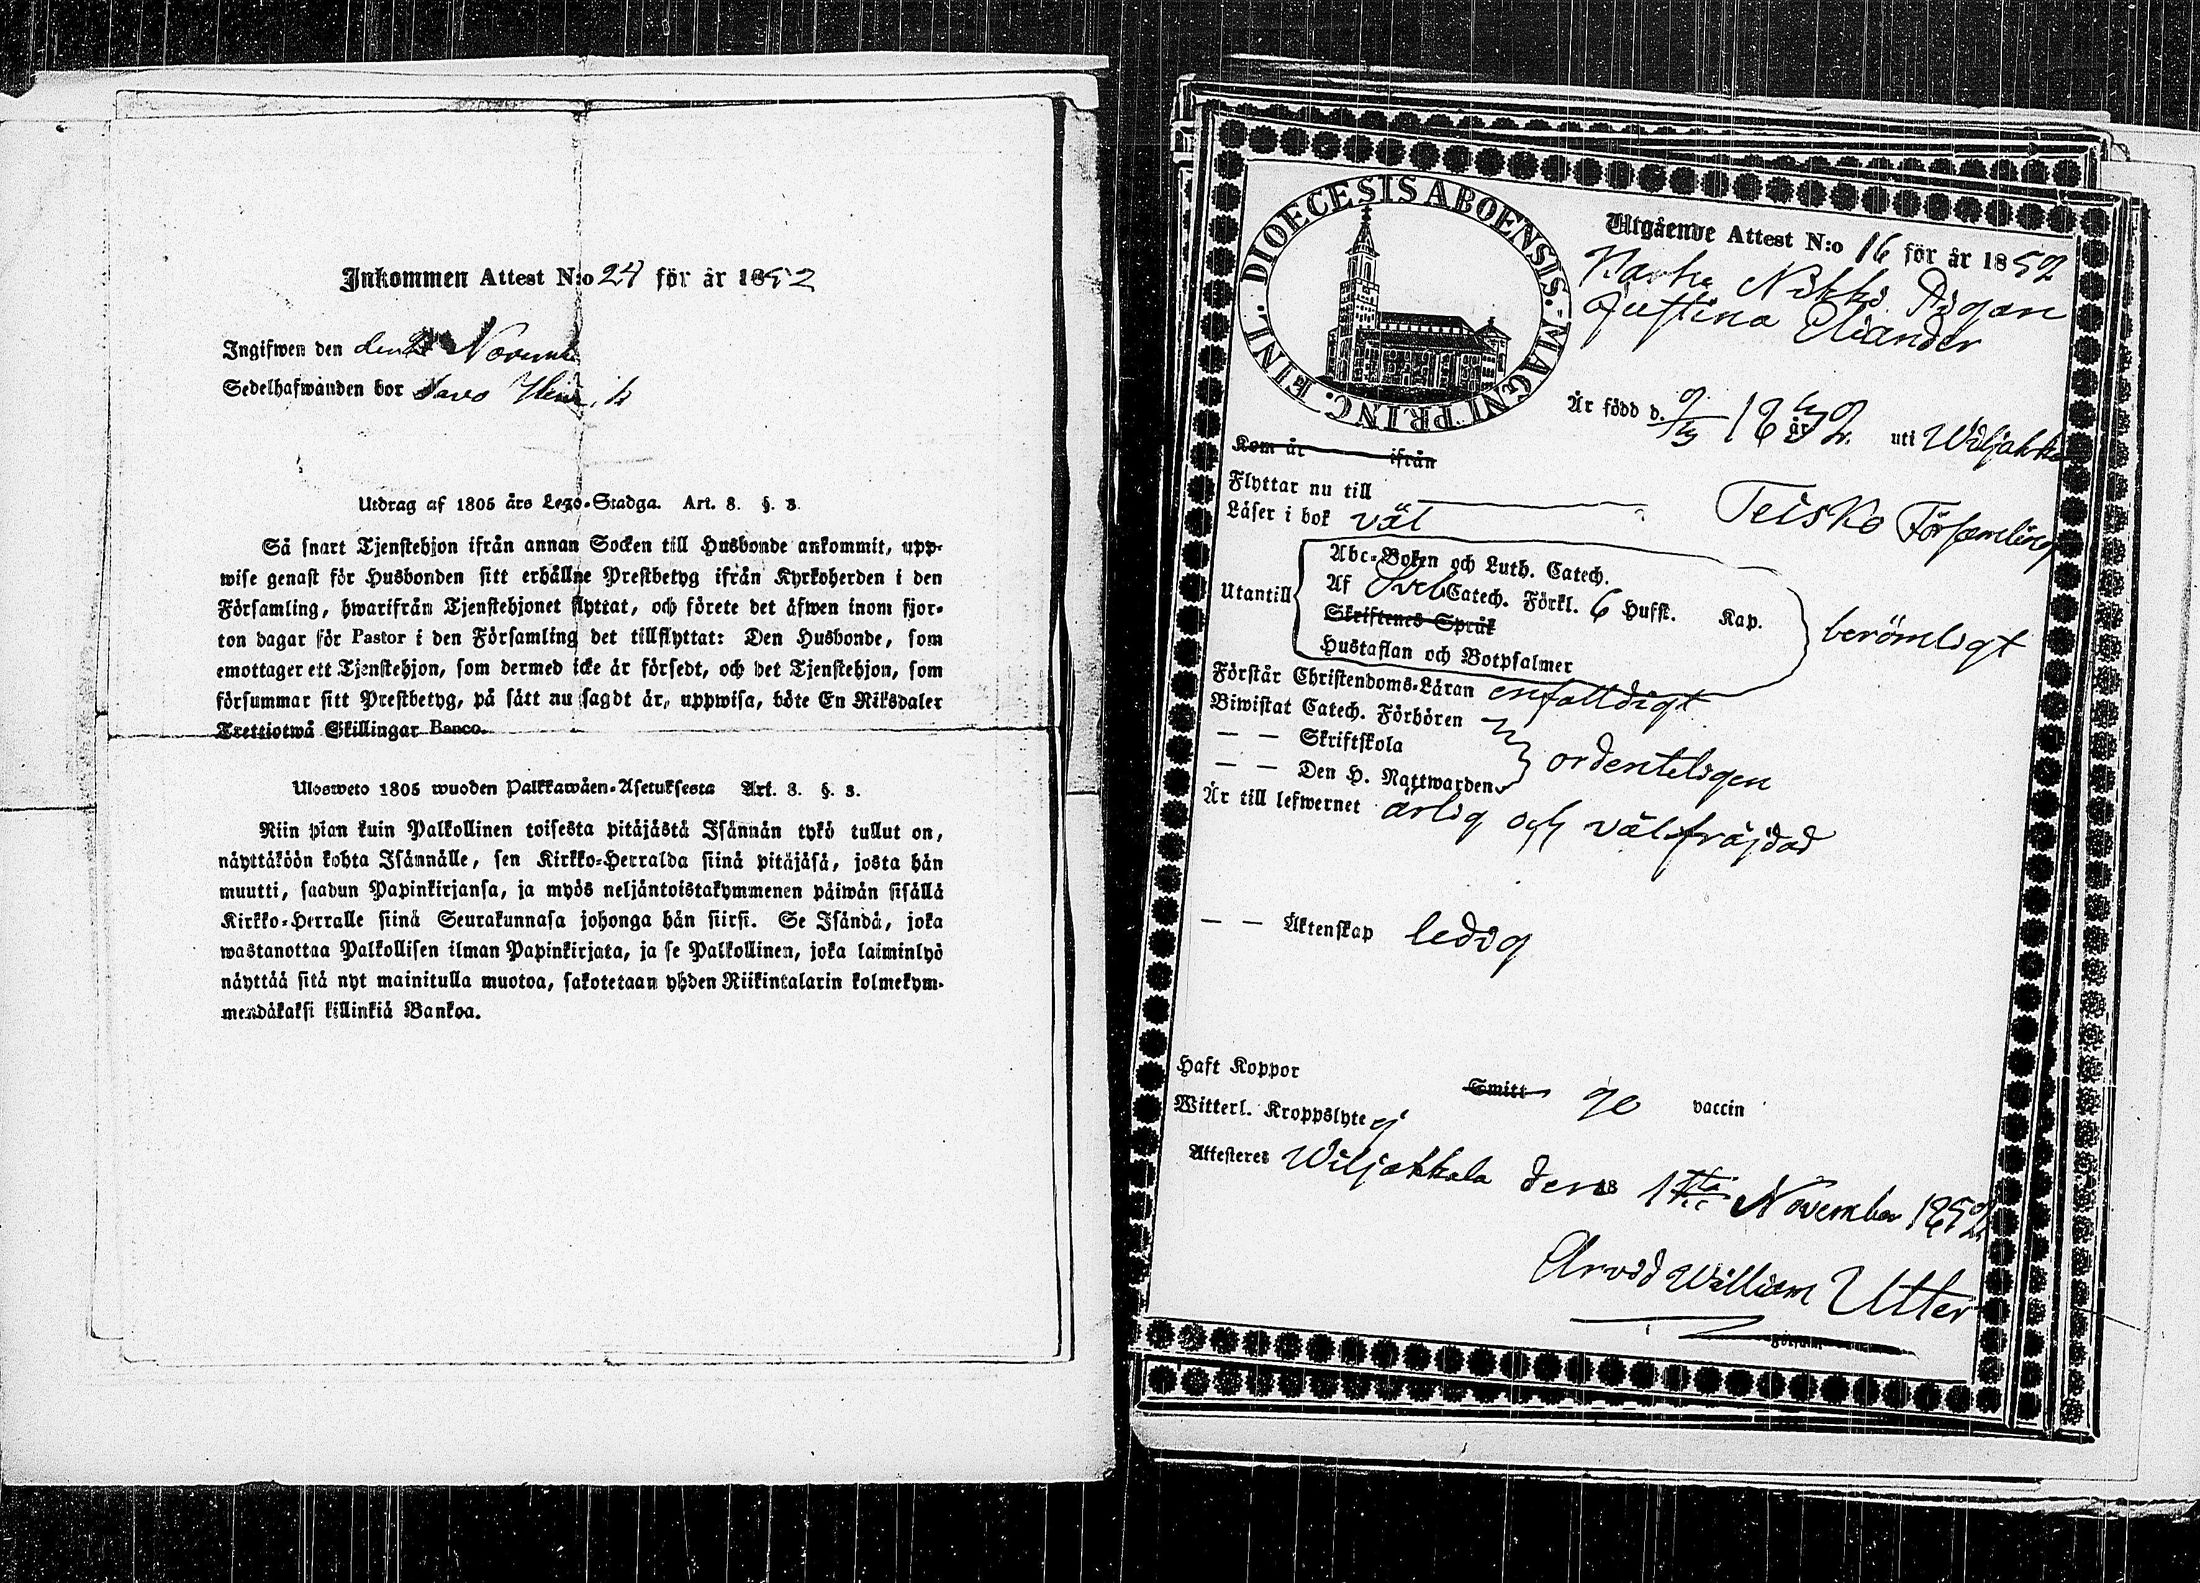 Inkommen Attest N:o 24 för år 1852
Ingifwen den den 2 Novemb
Sedelhafwanden bor
Utdrag af 1805 års Lego-Stadga. Art. 8. §. 3.
Så snart Tjenstehjon ifrån annan Socken till Husbonde ankommit, upp-
wise genast för Husbonden sitt erhållne Prestbetyg ifrån Kyrkoherden i den
Församling, hwarifrån Tjenstehjonet flyttat, och förete det äfwen inom fjor-
ton dagar för Pastor i den Församling det tillflyttat: Den Husbonde, som
emottager ett Tjenstehjon, som dermed icke är försedt, och det Tjenstehjon, som
försummar sitt Prestbetyg, på sätt nu sagdt är, uppwisa, böte En Riksdaler
Trettiotwå Skillingar Banco.
Ulosweto 1805 wuoden Palkkawäen-Asetuksesta Art. 8. §. 3.
Niin pian kuin Palkollinen toisesta pitäjästä Isännän tykö tullut on,
näyttäköön kohta Isännälle, sen Kirkko-Herralda siinä pitäjäsä, josta hän
muutti, saadun Papinkirjansa, ja myös neljäntoistakymmenen päiwän sisällä
Kirkko-Herralle siinä Seurakunnasa johonga hän siirsi. Se Isändä, joka
wastanottaa Palkollisen ilman Papinkirjata, ja se Palkollinen, joka laiminlyö
näyttää sitä nyt mainitulla muotoa, sakotetaan yhden Riikintalarin kolmekym-
mendäkaksi killinkiä Bankoa.
DIOECESIS ABOENSIS. MAGNI PRINC. FINL.
Utgående Attest N:o 16 för år 1852
Pigan
Justina Eliander
Är född d. år uti Wiljakkala
Kom år ifrån
Flyttar nu till Teisko Församling
Läser i bok väl
Abc-Boken och Luth. Catech.
Utantill Af Sveb Catech. Förkl. 6 Hufst. Kap. berömligt
Skriftenes Språk
Hustaflan och Botpsalmer
Förstår Christendoms-Läran enfalldigt
Biwistat Catech. Förhören
— — Skriftskola ordenteligen
— — Den H. Nattwarden
Är till lefwernet ärlig och välfräjdad
— — Äktenskap ledig
Haft Koppor Smitt vaccin
Witterl. Kroppslyte ej
Attesteres Wiljakkala den 18 1sta November 1852
Arvid William Utter